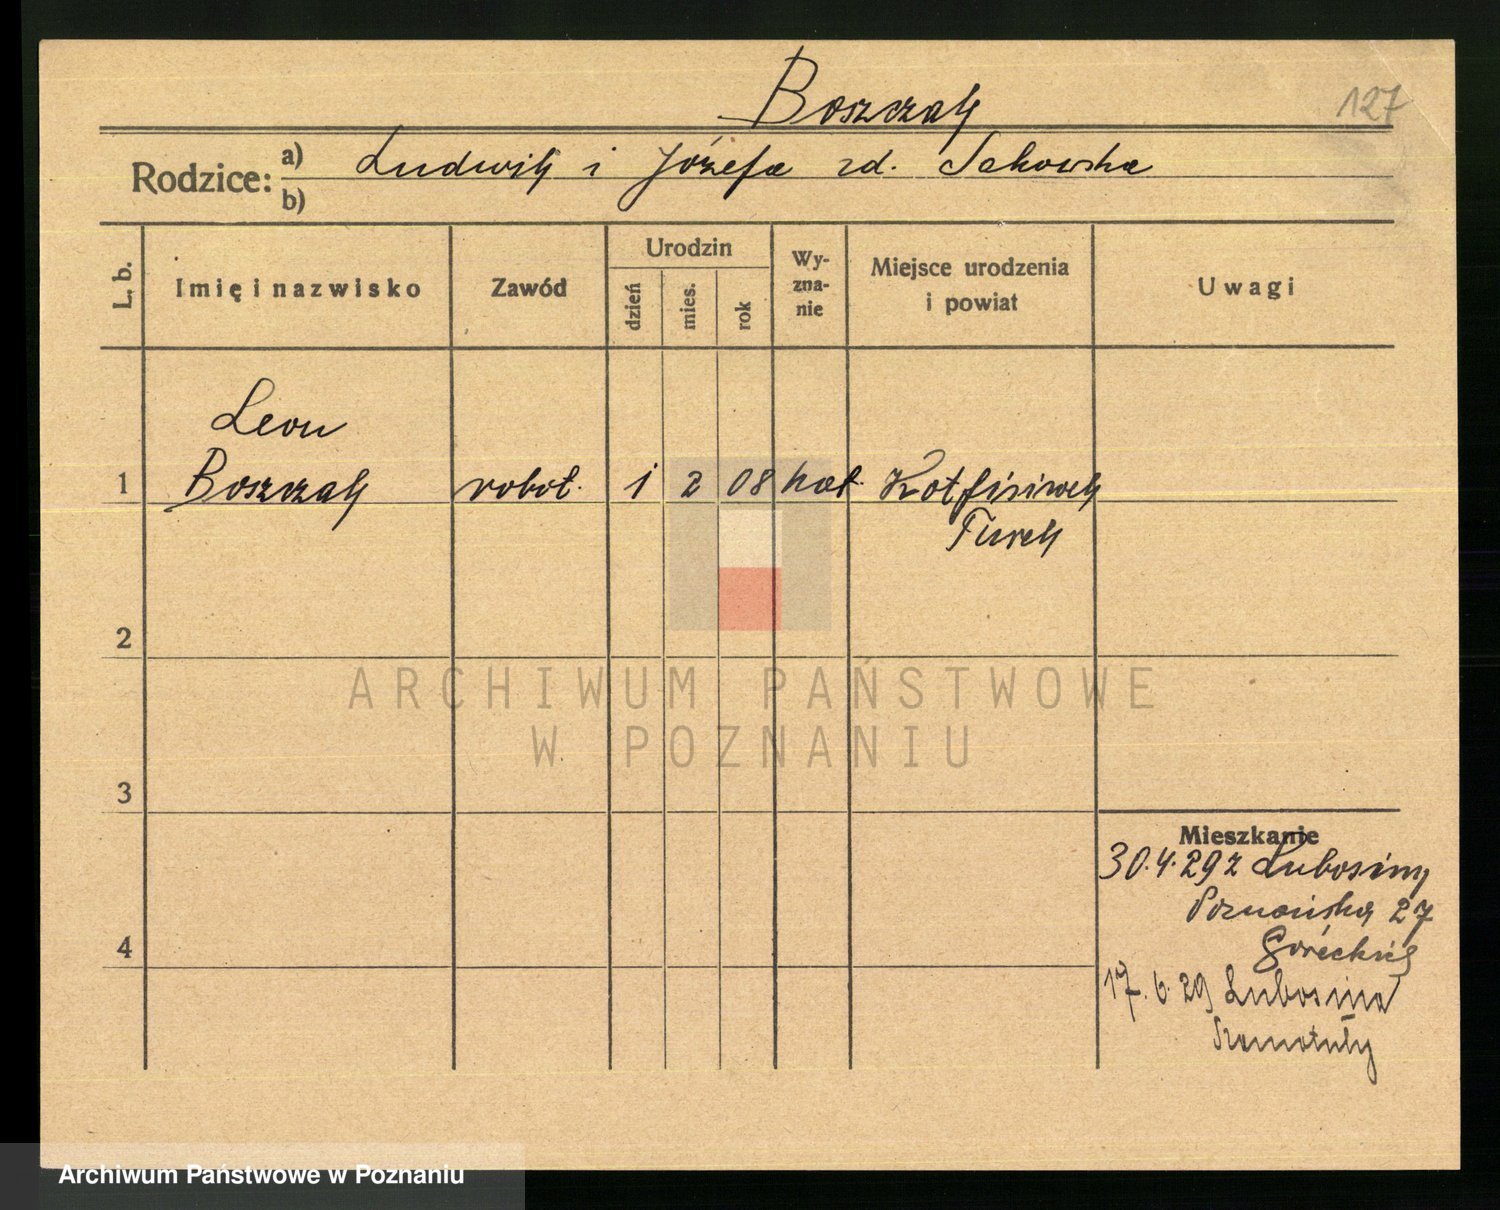 Boszczak
127
Rodzice: a) Ludwik i Józefa zd. Sakowska
b)
L. b. Imię i nazwisko Zawód Urodzin dzień mies. rok Wyznanie Miejsce urodzenia i powiat Uwagi
Leon
1 Boszczak robot. 1 2 08 kat.
Turek
2
ARCHIWUM PAŃSTWOWE
W POZNANIU
3
Mieszkanie
30.4.29 z Lubosiny
Poznańska 27
4
17.6.29 Lubosina
Szamotuły
Archiwum Państwowe w Poznaniu